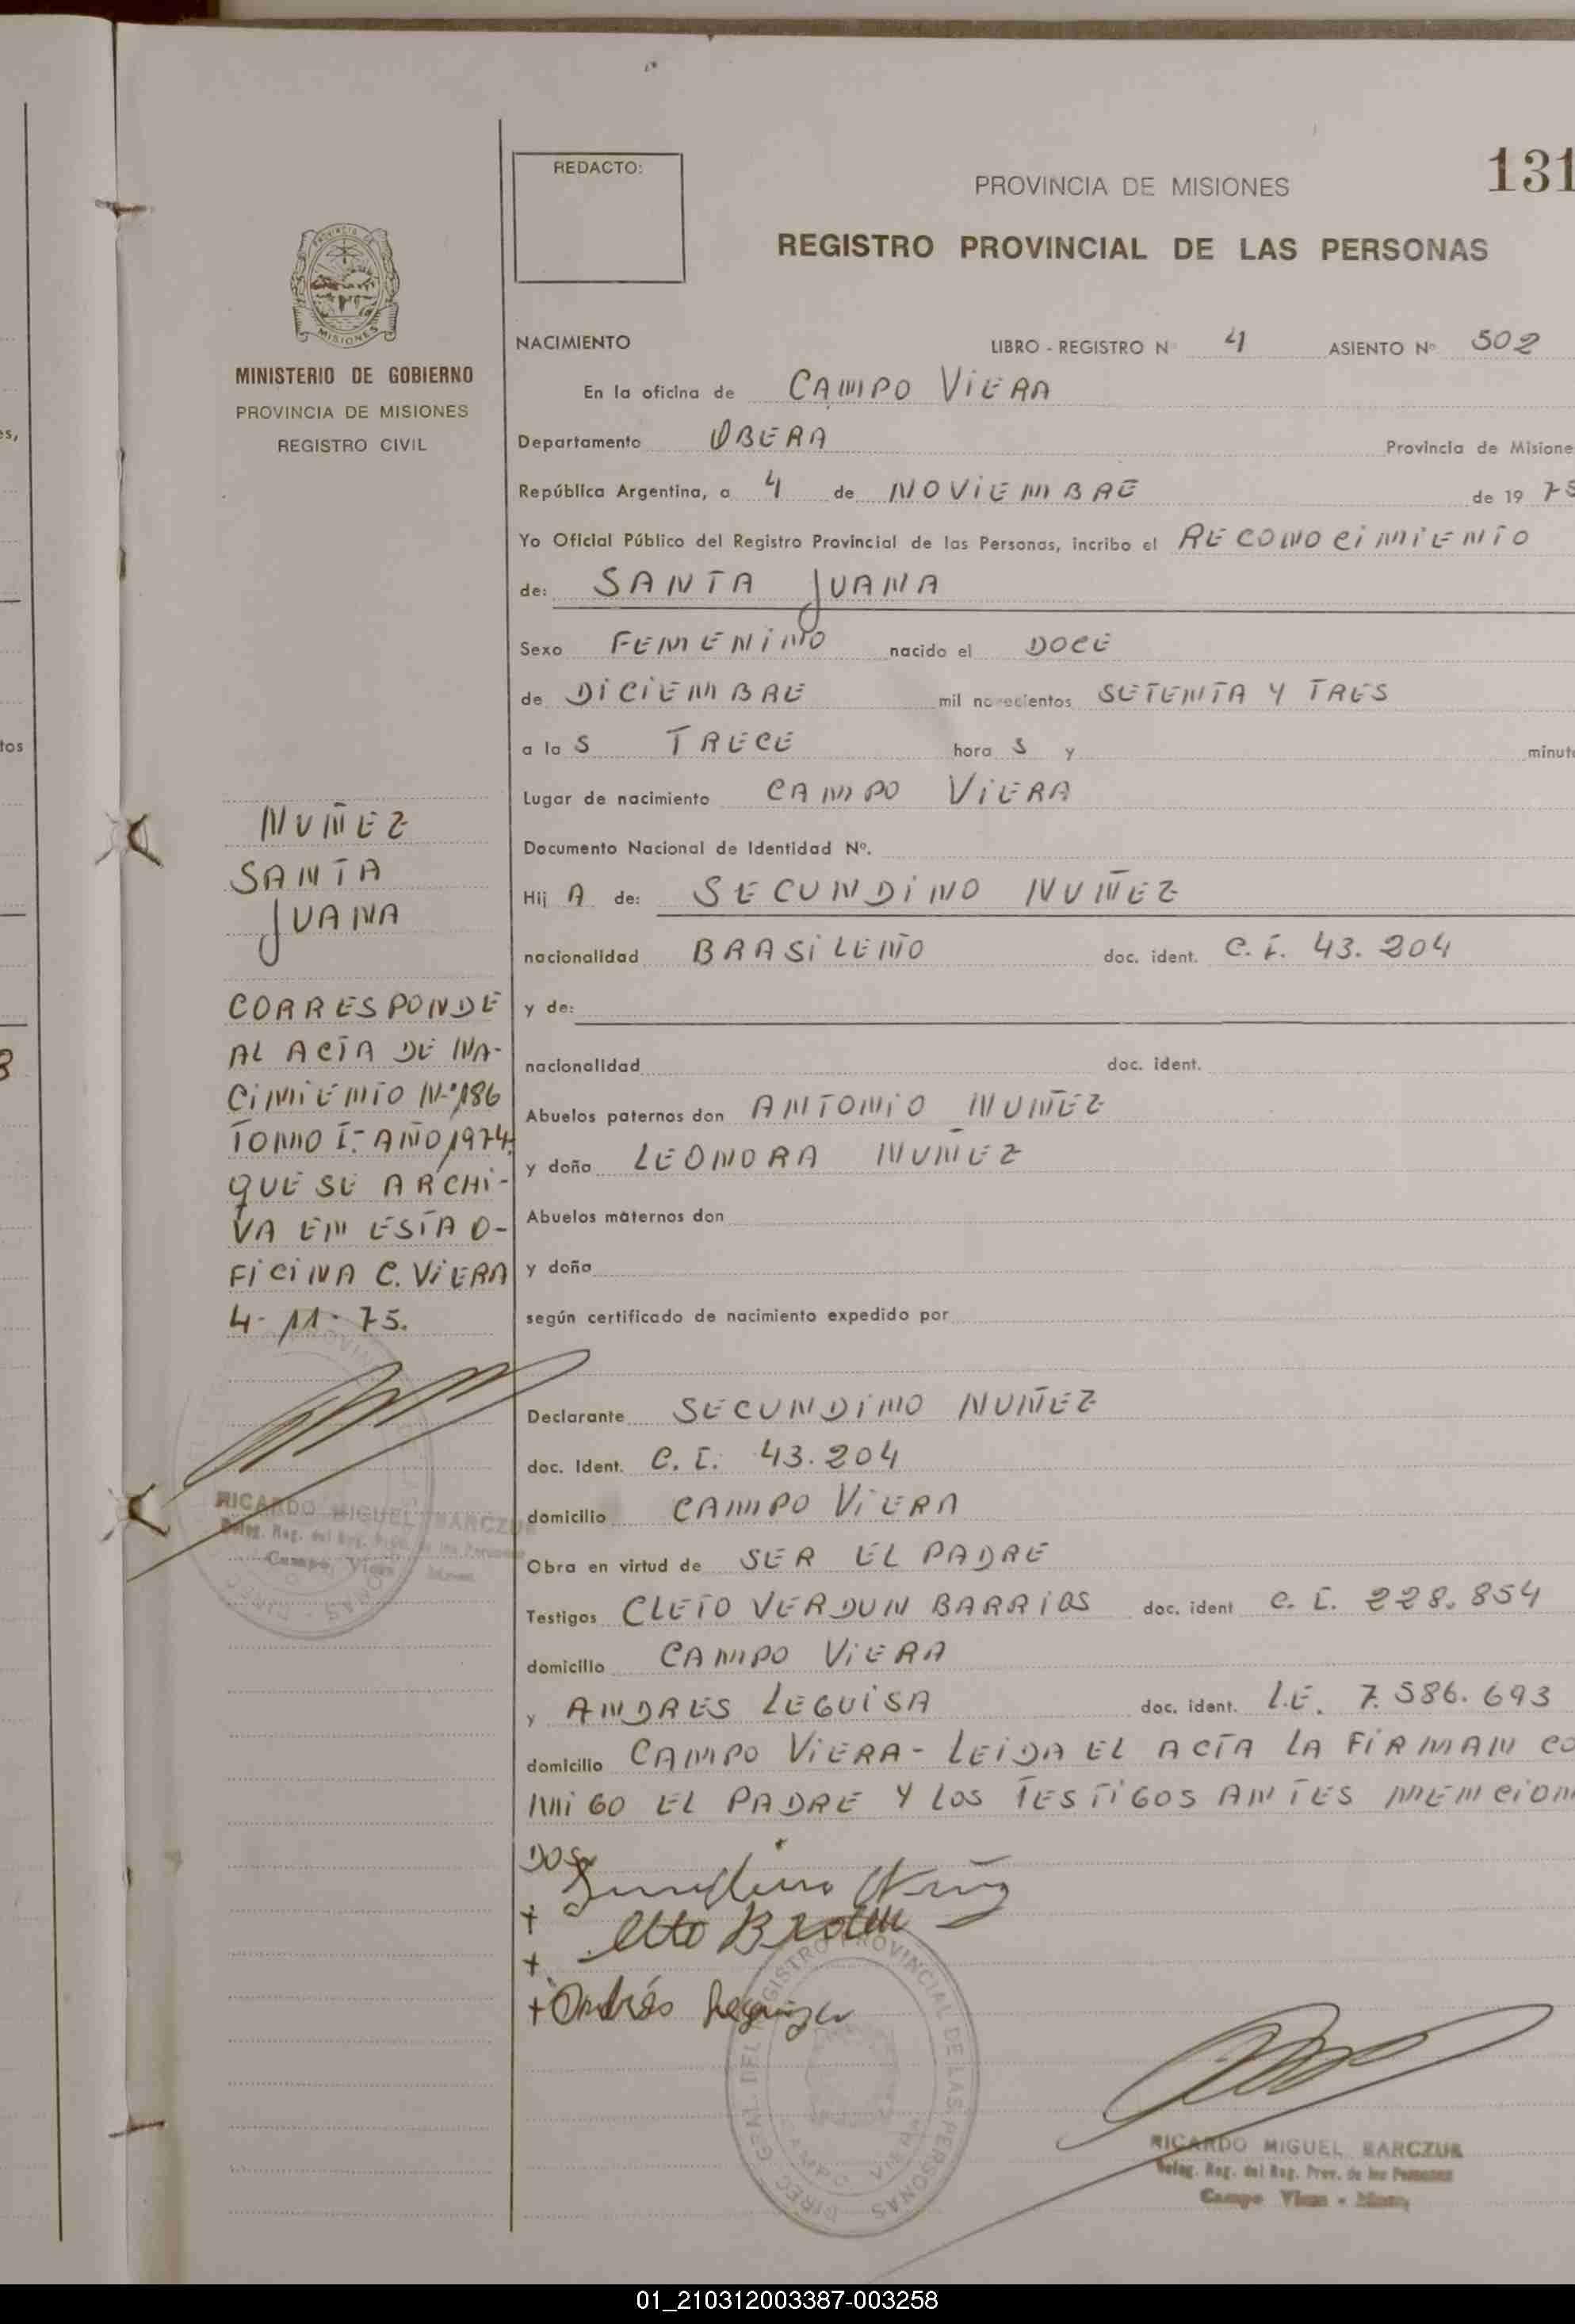 131
REDACTO:
PROVINCIA DE MISIONES
REGISTRO PROVINCIAL DE LAS PERSONAS
PROVINCIA DE
MISIONES
MINISTERIO DE GOBIERNO
PROVINCIA DE MISIONES
REGISTRO CIVIL
NACIMIENTO LIBRO - REGISTRO Nº 4 ASIENTO Nº 502
En la oficina de CAMPO VIERA
Departamento OBERA Provincia de Misione
República Argentina, a 4 de NOVIEMBRE de 19 75
Yo Oficial Público del Registro Provincial de las Personas, incribo el RECONOCIMIENTO
de: SANTA JUANA
Sexo FEMENINO nacido el DOCE
de DICIEMBRE mil novecientos SETENTA Y TRES
a la S TRECE hora S y minut
Lugar de nacimiento CAMPO VIERA
Documento Nacional de Identidad Nº.
Hij A de: SECUNDINO NUÑEZ
nacionalidad BRASILEÑO doc. ident. C.I. 43.204
y de:
nacionalidad doc. ident.
Abuelos paternos don ANTONIO NUÑEZ
y doña LEONORA NUÑEZ
Abuelos maternos don
y doña
según certificado de nacimiento expedido por
Declarante SECUNDINO NUÑEZ
doc. Ident. C.I. 43.204
domicilio CAMPO VIERA
Obra en virtud de SER EL PADRE
Testigos CLETO VERDUN BARRIOS doc. ident C.I. 228.854
domicilio CAMPO VIERA
y ANDRES LEGUISA doc. ident. L.E. 7.586.693
domicilio CAMPO VIERA- LEIDA EL ACTA LA FIRMAN CO
MIGO EL PADRE Y LOS TESTIGOS ANTES MENCION
DOS
NUÑEZ
SANTA
JUANA
CORRESPONDE
AL ACTA DE NA-
CIMIENTO N.º186
TOMO I.- AÑO 1974.
QUE SE ARCHI-
VA EN ESTA O-
FICINA C. VIERA
4-11-75.
RICARDO MIGUEL BARCZUK
Deleg. Reg. del Reg. Prov. de las Personas
Campo Viera
Andrés
DIREC. GRAL. DEL REGISTRO PROVINCIAL DE LAS PERSONAS
RICARDO MIGUEL BARCZUK
Deleg. Reg. del Reg. Prov. de las Personas
Campo Viera - Mnes.
es,
tos
01_210312003387-003258